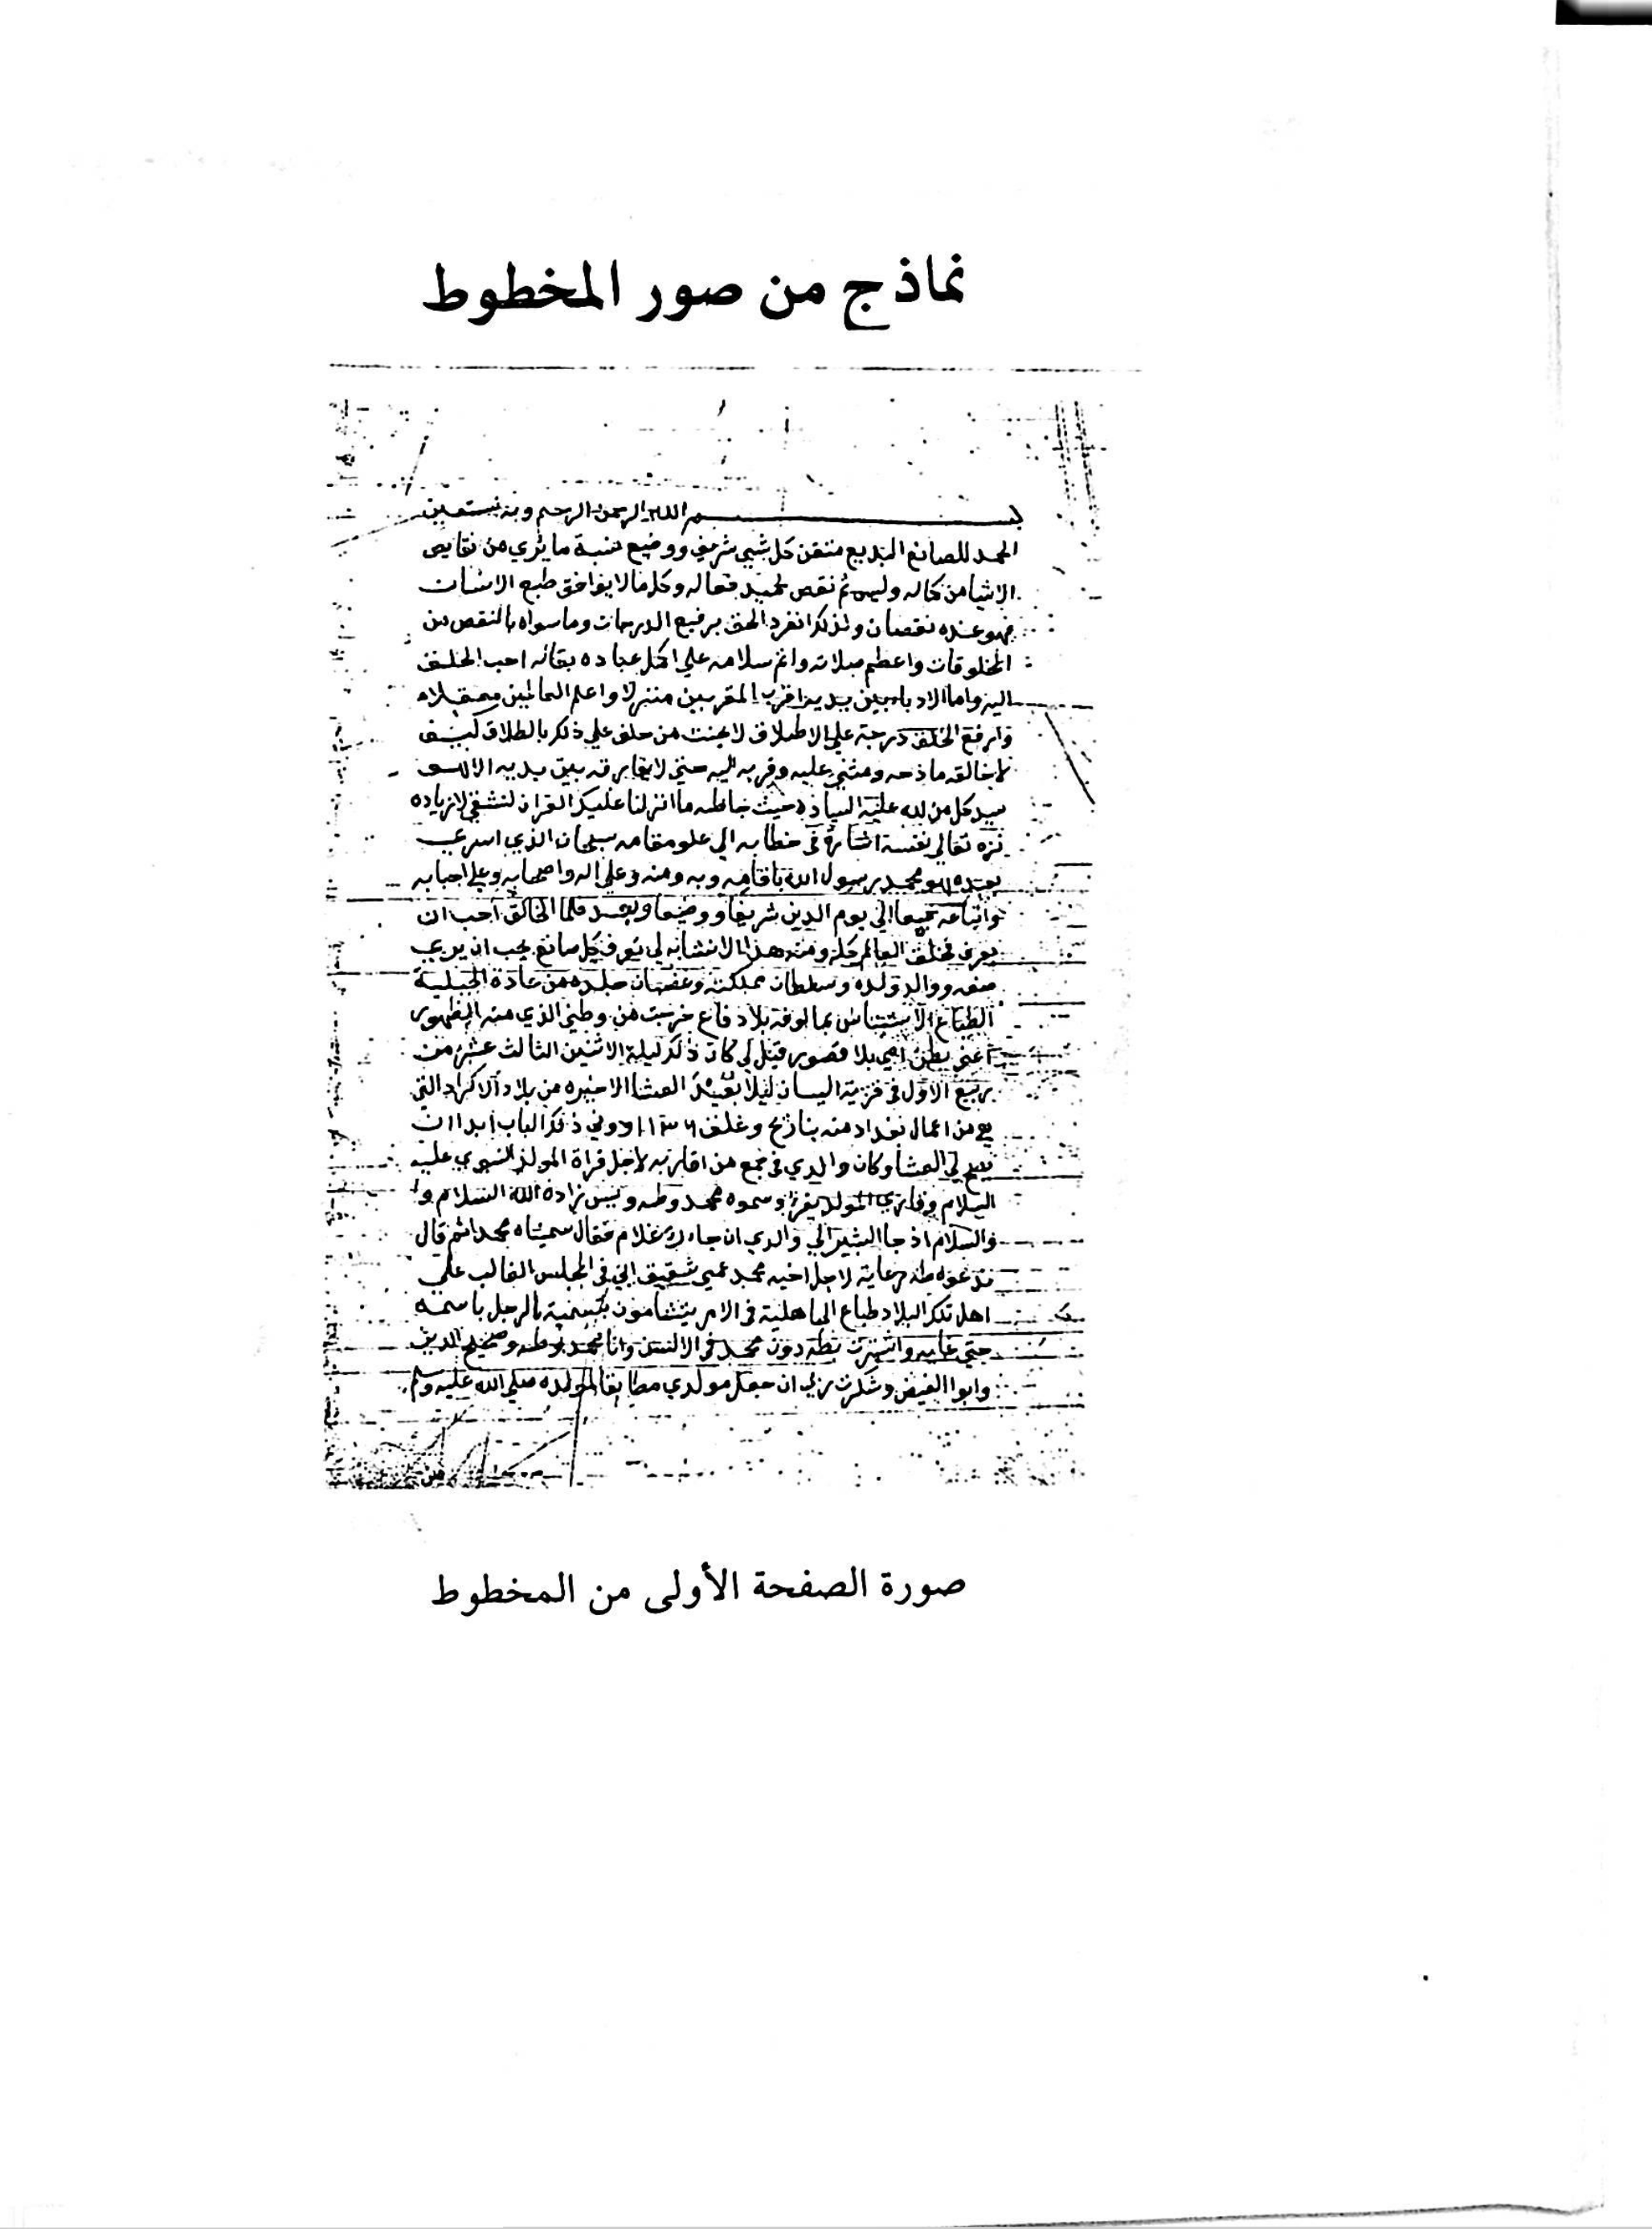 نماذج من صور المخطوط
بسم الله الرحمن الرحيم وبه نستعين
الحمد للصانع البديع متقن كل شيئ شريف ووضيع نسبة ما يري من نقايص
الاشيا من كماله وليس ثم نقص لحميد فعاله وكل ما لا يوافق طبع الانسان
فهو عنده نقصان ولذلك انفرد الحق برفيع الدرجات وما سواه بالنقص من
المخلوقات واعظم صلاته واتم سلامه علي اكمل عباده بقائه احب الخلق
اليه واما الادباء بين يديه اقرب المقربين منزلا واعلم العالمين
وارفع الخلق درجة علي الاطلاق لا يحنث من حلف علي ذلك بالطلاق كيف
لا خالقه مادحه ومثني عليه وقربه اليه حتي لا يفارقه بين يديه
سيد كل من لله عليه السياده حيث خاطبه ما انزلنا عليك القران لتشقي لا زياده
نزه تعالي نفسه اشارة في خطابه الي علو مقامه سبحان الذي اسري
بعبده هو محمد رسول الله وبه ومنه وعلي اله واصحابه وعلي احبابه
واتباعه جميعا الي يوم الدين شريفا ووضيعا وبعد فلما الخالق احب ان
يعرف فخلق العالم كله ومنه هذا الانشا به لي تعرف كل صانع يحب ان يري
صنعه ووالد ولده وسلطان مملكته من عادة الجبلية
الطباع الاستئناس بمالوفه بلا دفاع خرجت من وطني الذي منه الظهور
اعني بطن امي بلا قصور قيل لي كان ذلك ليلة الاثنين الثالث عشر من
ربيع الاول في قرية اليسان ليلا بعيد العشا الاخيره من بلاد الاكراد التي
هي من اعمال بغداد منه بتاريخ وغلق ١١٣٦ وفي ذلك الباب ابدا ان
لي العشا وكان والدي في جمع من اقاربه لاجل قراة المولد النبوي عليه
السلام وقاري المولد يقرا وسموه محمد وطه ويس زاده الله السلام وا
والسلام اذ جا البشير الي والدي ان جاءك غلام فقال سميناه محمدا ثم قال
ندعوه طه رعاية لاجل اخيه محمد عمي شقيق ابي في المجلس الغالب علي
اهل تلك البلاد طباع الجاهلية في الامر يتشامون بتسمية الرجل باسمه
حتي عابه واشتهرت بطه دون محمد في الالسن وانا محمد وطه وصحيح الدين
وابوا الفيض وشكرت ربي ان جعل مولدي مطابقا لمولده صلي الله عليه وسلم
صورة الصفحة الأولى من المخطوط